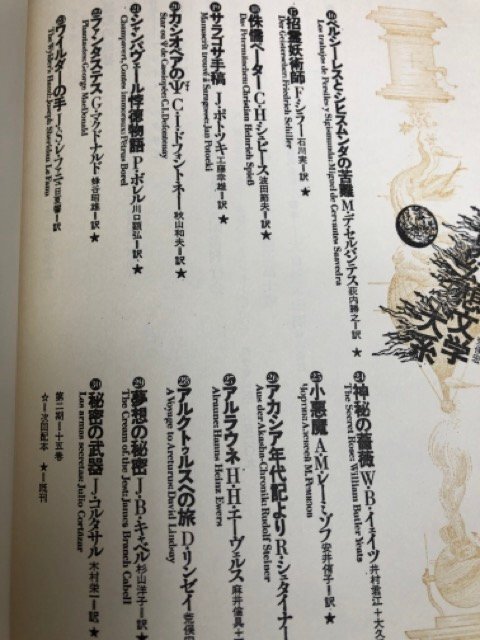 幻想文学大系
⑯ペルシーレスとシヒスムンダの苦難 M・デ・セルバンテス 荻内勝之=訳 ★
Los trabajos de Persiles y Sigismunda: Miguel de Cervantes Saavedra
⑰招霊妖術師 F・シラー 石川実=訳 ★
Der Geisterseher: Friedrich Schiller
⑱侏儒ペーター C・H・シュピース 波田節夫=訳 ★
Das Petermännchen: Christian Heinrich Spieß
⑲サラゴサ手稿 J・ポトツキ 工藤幸雄=訳 ★
Manuscrit trouvé à Saragosse: Jan Potocki
⑳カシオペアのΨ C・I・ドフォントネー 秋山和夫=訳 ★
Star ou Ψ de Cassiopée: C.I. Defontenay
㉑シャンパヴェール悖徳物語 P・ボレル 川口顕弘=訳 ★
Champavert, Contes immoraux: Pétrus Borel
㉒ファンタステス G・マクドナルド 蜂谷昭雄=訳 ★
Phantastes: George MacDonald
㉓ワイルダーの手 J・S・レ・ファニュ 日夏響=訳 ★
The Wyvern's Hand: Joseph Sheridan Le Fanu
㉔神秘の薔薇 W・B・イェイツ 井村君江+大久
The Secret Rose: William Butler Yeats
㉕小悪魔 A・M・レーミゾフ 安井侑子=訳
㉖アカシア年代記より R・シュタイナー
Aus der Akasha-Chronik: Rudolf Steiner
㉗アルラウネ H・H・エーヴェルス 麻井倫具+
Alraune: Hanns Heinz Ewers
㉘アルクトゥルスへの旅 D・リンゼイ 荒俣
A Voyage to Arcturus: David Lindsay
㉙夢想の秘密 J・B・キャベル 杉山洋子=訳 ★
The Cream of the Jest: James Branch Cabell
㉚秘密の武器 J・コルタサル 木村榮一=訳 ★
Las armas secretas: Julio Cortázar
第二期=十五巻
☆=次回配本 ★=既刊